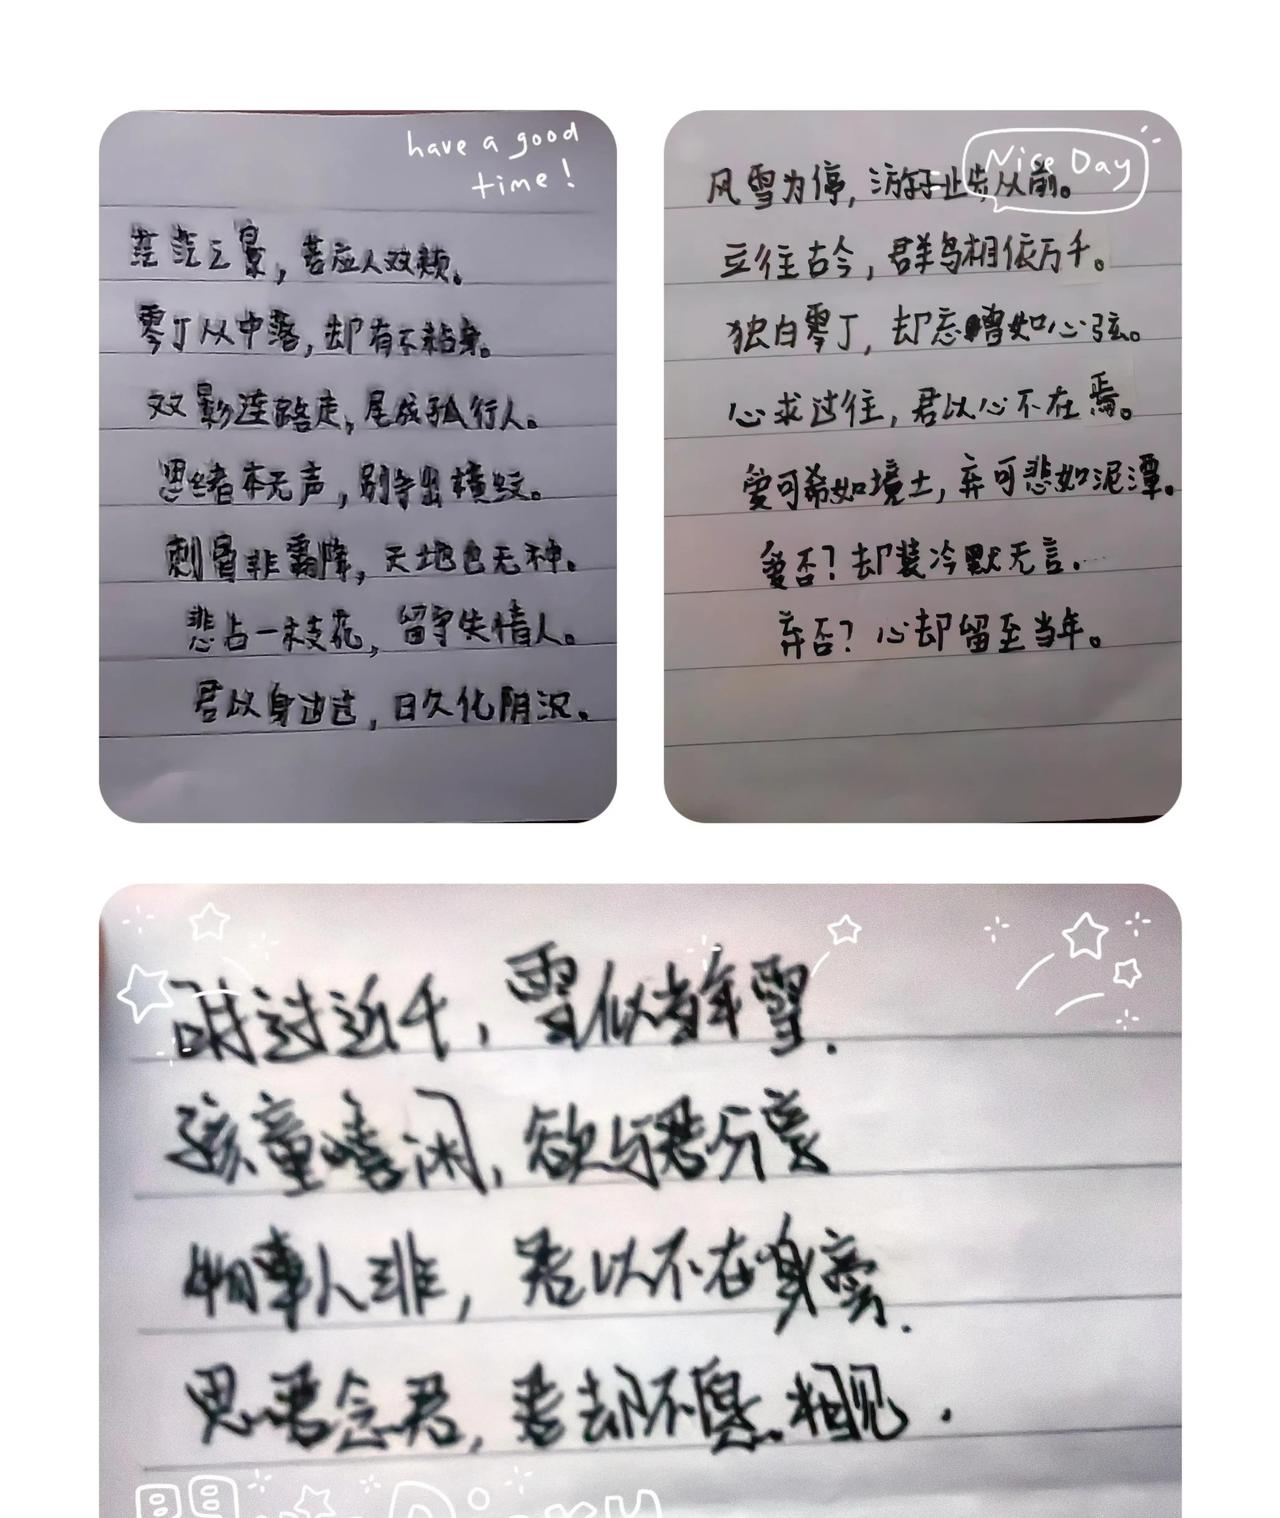 have a good
time!
之景，若应人双颊。
零丁从中落，却有不粘身。
双影连路走，尾成孤行人。
思绪本无声，别字出横纹。
刺骨非霜降，天地也无神。
悲占一枝花，留字失情人。
君以身边过，日久化阴沉。
Nice Day
风雪为停，游子止步从前。
立往古今，群鸟相依万千。
独白零丁，却忘曾如心弦。
心求过往，君以心不在焉。
爱可希如境土，弃可悲如泥潭。
爱否？却装冷默无言.
弃否？心却留至当年。
时过近千，雪似当年雪.
孩童嘻闹，欲与君分享
物事人非，君以不在身旁.
思君念君，君却不愿相见.